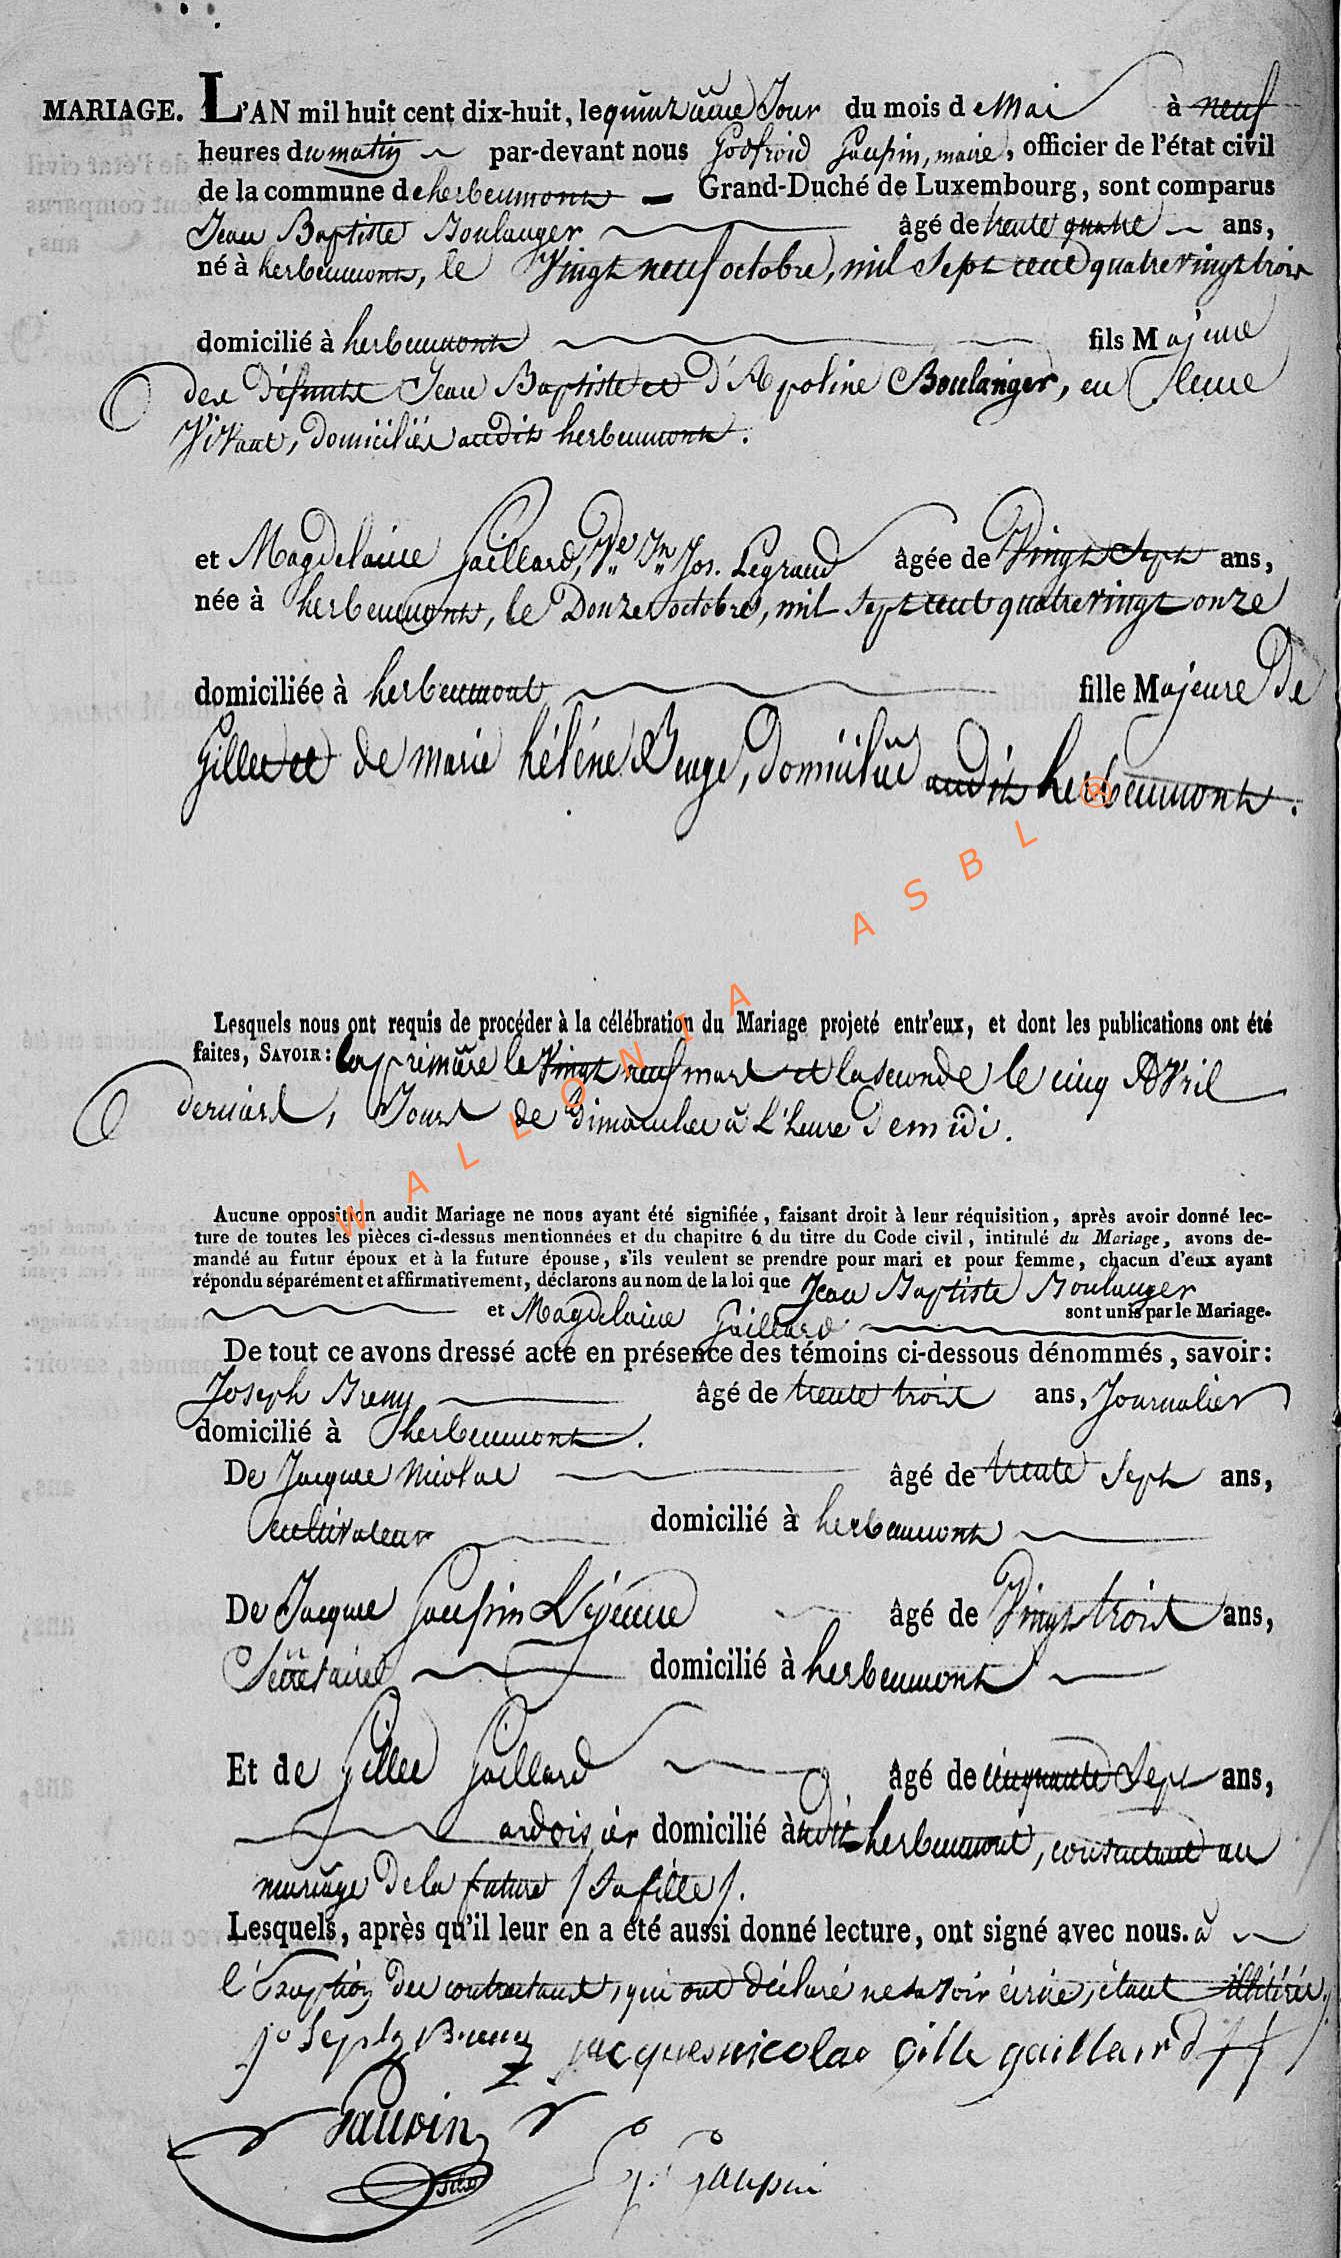 MARIAGE. L'AN mil huit cent dix-huit, le quinzième Jour du mois de Mai à neuf
heures du matin par-devant nous Godfroid Gaupin, maire, officier de l'état civil
de la commune de herbeumont Grand-Duché de Luxembourg, sont comparus
Jean Baptiste Boulanger âgé de trente quatre ans,
né à herbeumont, le Vingt neuf octobre, mil sept cent quatre vingt trois
domicilié à herbeumont fils Majeur
des défunts Jean Baptiste et d'Apoline Boulanger, en leur
Vivant, domiciliés audit herbeumont.
et Magdelaine Gaillard, Ve Jn Jos. Legrand âgée de Vingt Sept ans,
née à herbeumont, le Douze octobre, mil sept cent quatre vingt onze
domiciliée à herbeumont fille Majeure De
Gilles et de marie héléne, domiciliés audit herbeumont.
Lesquels nous ont requis de procéder à la célébration du Mariage projeté entr'eux, et dont les publications ont été
faites, SAVOIR: la premiere le Vingt neuf mars et la seconde le cinq Avril
derniers, Jours de dimanches à l'heure de midi.
Aucune opposition audit Mariage ne nous ayant été signifiée, faisant droit à leur réquisition, après avoir donné lec-
ture de toutes les pièces ci-dessus mentionnées et du chapitre 6 du titre du Code civil, intitulé du Mariage, avons de-
mandé au futur époux et à la future épouse, s'ils veulent se prendre pour mari et pour femme, chacun d'eux ayant
répondu séparément et affirmativement, déclarons au nom de la loi que Jean Baptiste Boulanger
et Magdelaine Gaillard sont unis par le Mariage.
De tout ce avons dressé acte en présence des témoins ci-dessous dénommés, savoir:
Joseph Breny âgé de trente trois ans, Journalier
domicilié à herbeumont.
De Jacques Nicolas âgé de trente Sept ans,
Cultivateur domicilié à herbeumont
De Jacques Gaupin Lejeune âgé de Vingt trois ans,
Secrétaire domicilié à herbeumont
Et de Gilles Gaillard âgé de cinquante Sept ans,
ardoisier domicilié audit herbeumont, consentant au
mariage de la future / sa fille /.
Lesquels, après qu'il leur en a été aussi donné lecture, ont signé avec nous. à
l'Exception des contractants, qui ont déclaré ne savoir écrire, étant illitérés.
joseph Breny jacques nicolas Gille gaillaird
Gaupin
G. Gaupin
WALLONIA ASBL ®